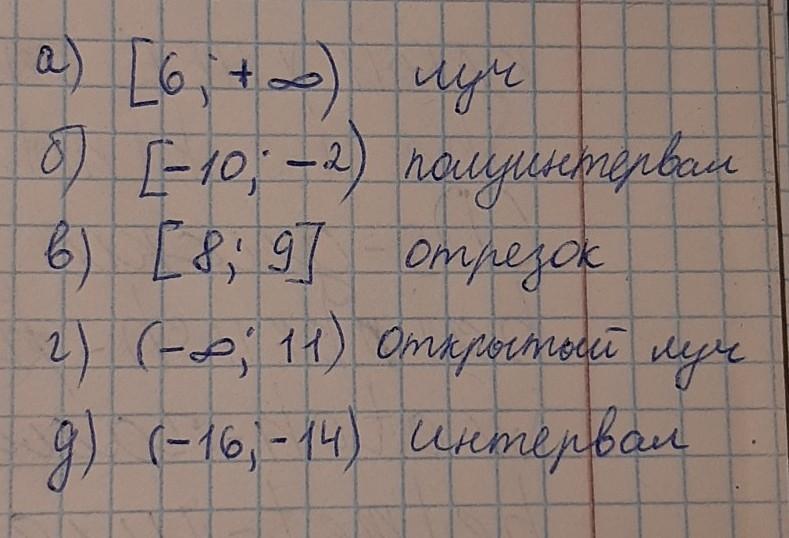 а) [6; + ∞) луч
б) [-10; -2) полуинтервал
в) [8; 9] отрезок
г) (-∞; 11) открытый луч
д) (-16; -14) интервал